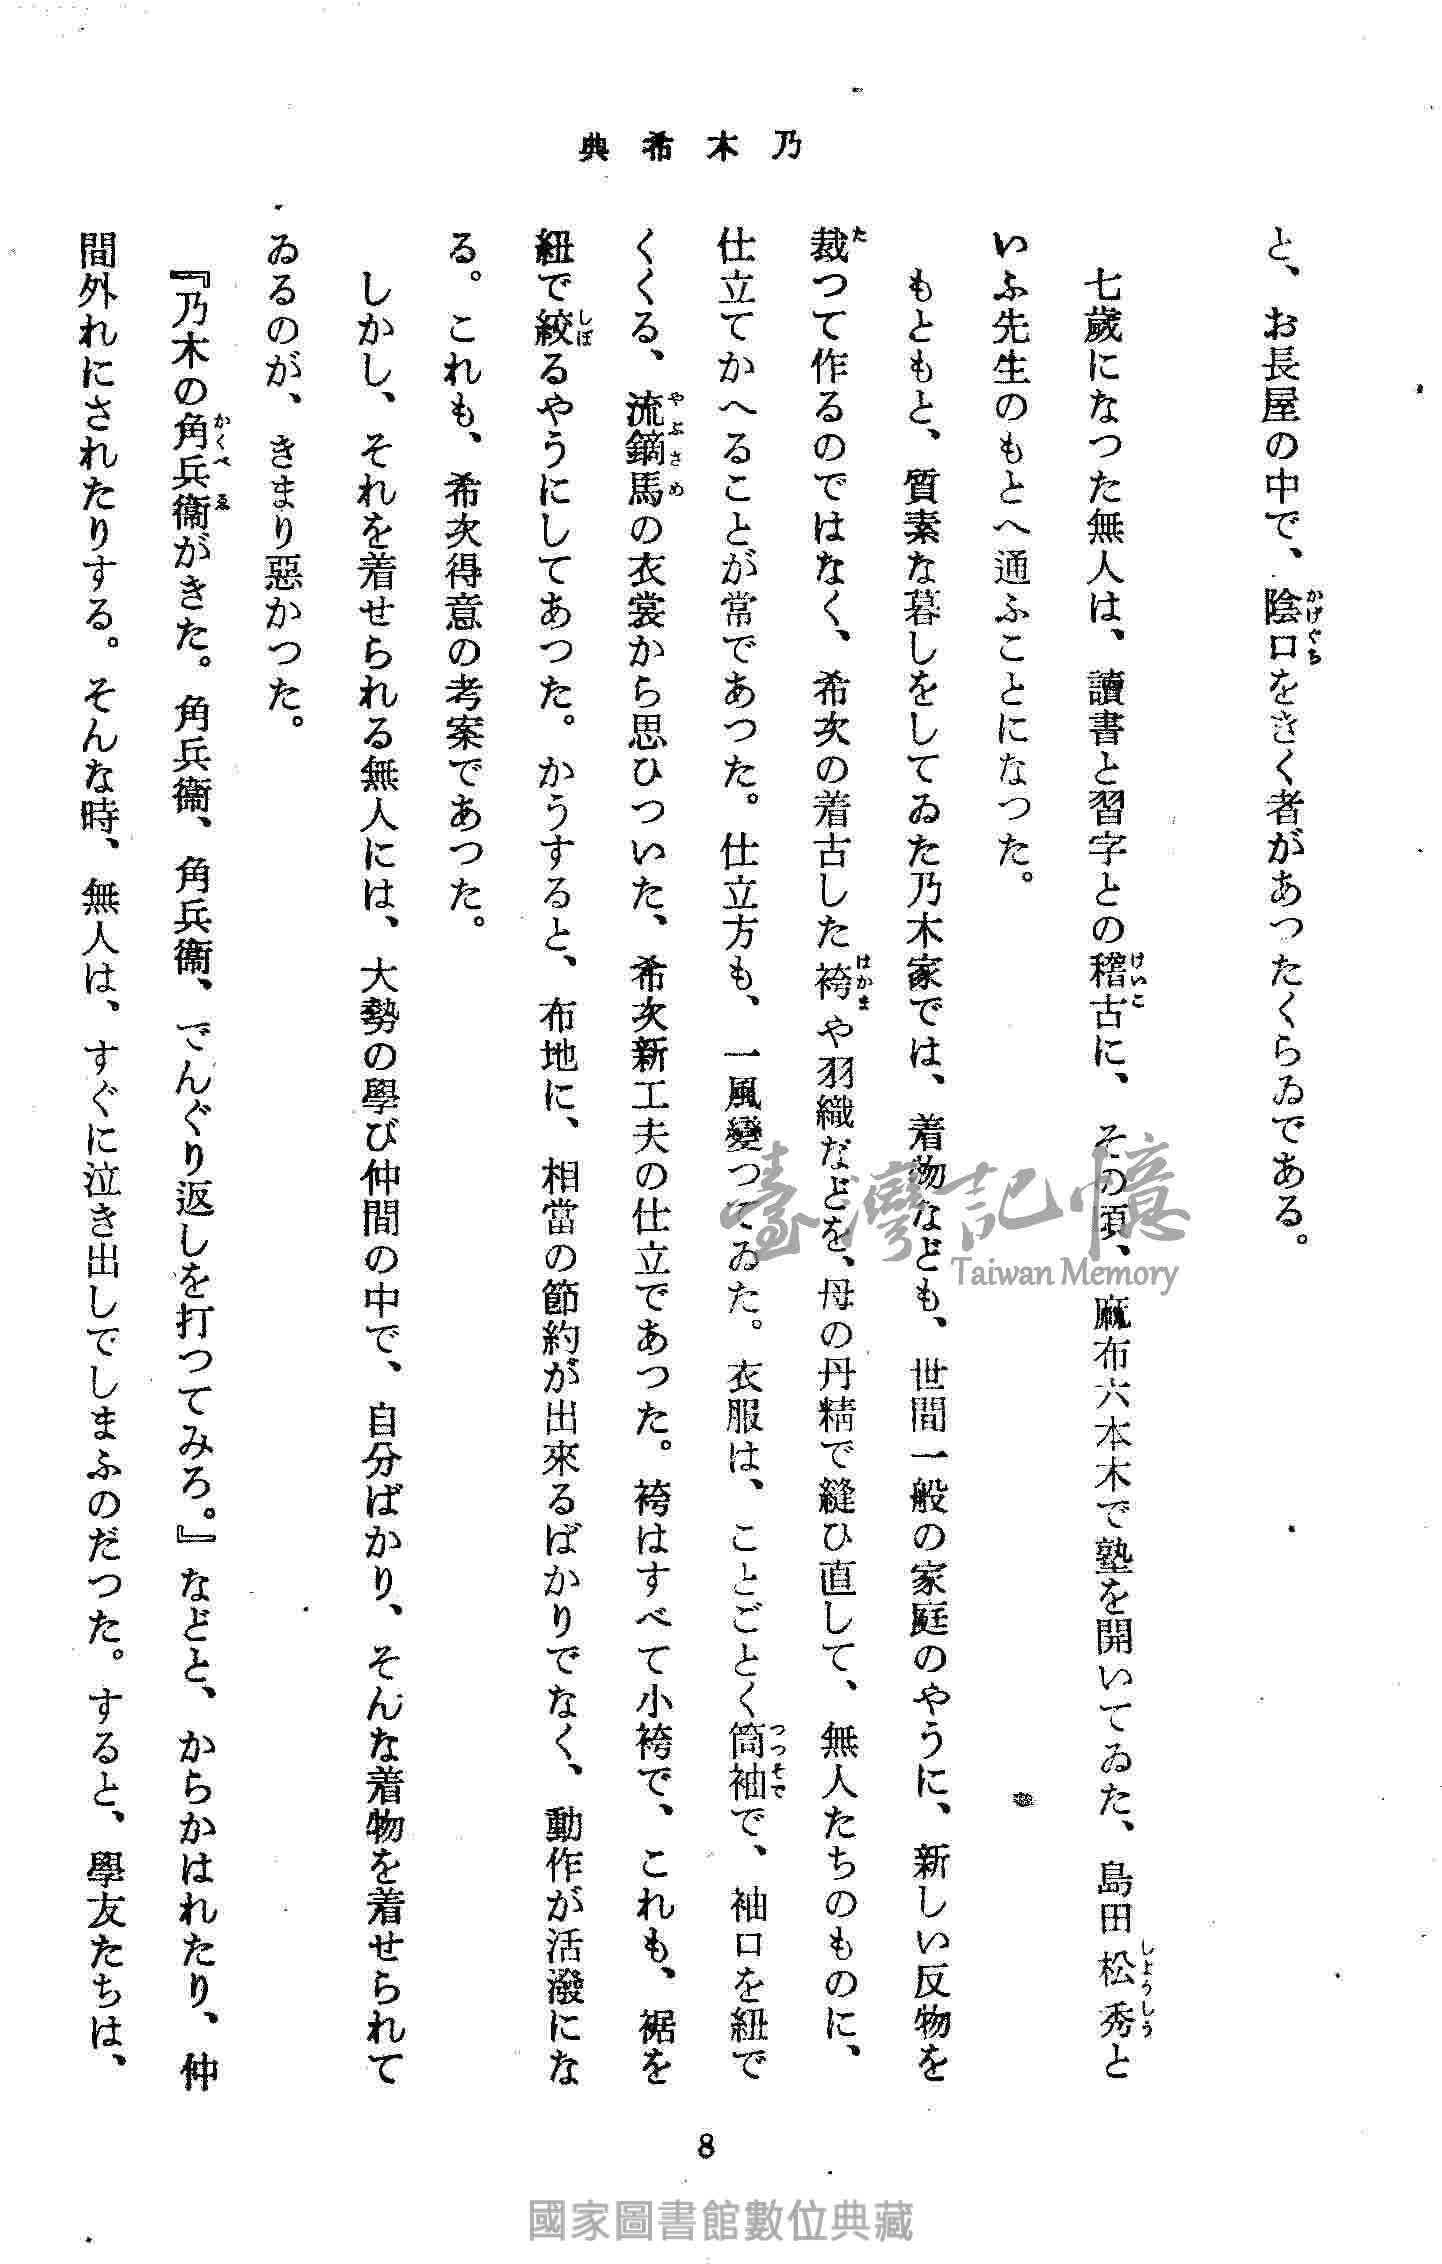 乃木希典
と、お長屋の中で、陰口をきく者があつたくらゐである。
七歳になつた無人は、讀書と習字との稽古に、その頃、麻布六本木で塾を開いてゐた、島田松秀と
いふ先生のもとへ通ふことになつた。
もともと、質素な暮しをしてゐた乃木家では、着物なども、世間一般の家庭のやうに、新しい反物を
裁つて作るのではなく、希次の着古した袴や羽織などを、母の丹精で縫ひ直して、無人たちのものに、
仕立てかへることが常であつた。仕立方も、一風變つてゐた。衣服は、ことごとく筒袖で、袖口を紐で
くくる、流鏑馬の衣裳から思ひついた、希次新工夫の仕立であつた。袴はすべて小袴で、これも、裾を
紐で絞るやうにしてあつた。かうすると、布地に、相當の節約が出來るばかりでなく、動作が活潑にな
る。これも、希次得意の考案であつた。
しかし、それを着せられる無人には、大勢の學び仲間の中で、自分ばかり、そんな着物を着せられて
ゐるのが、きまり惡かつた。
『乃木の角兵衞がきた。角兵衞、角兵衞、でんぐり返しを打つてみろ。』などと、からかはれたり、仲
間外れにされたりする。そんな時、無人は、すぐに泣き出しでしまふのだつた。すると、學友たちは、
8
臺灣記憶
Taiwan Memory
國家圖書館數位典藏